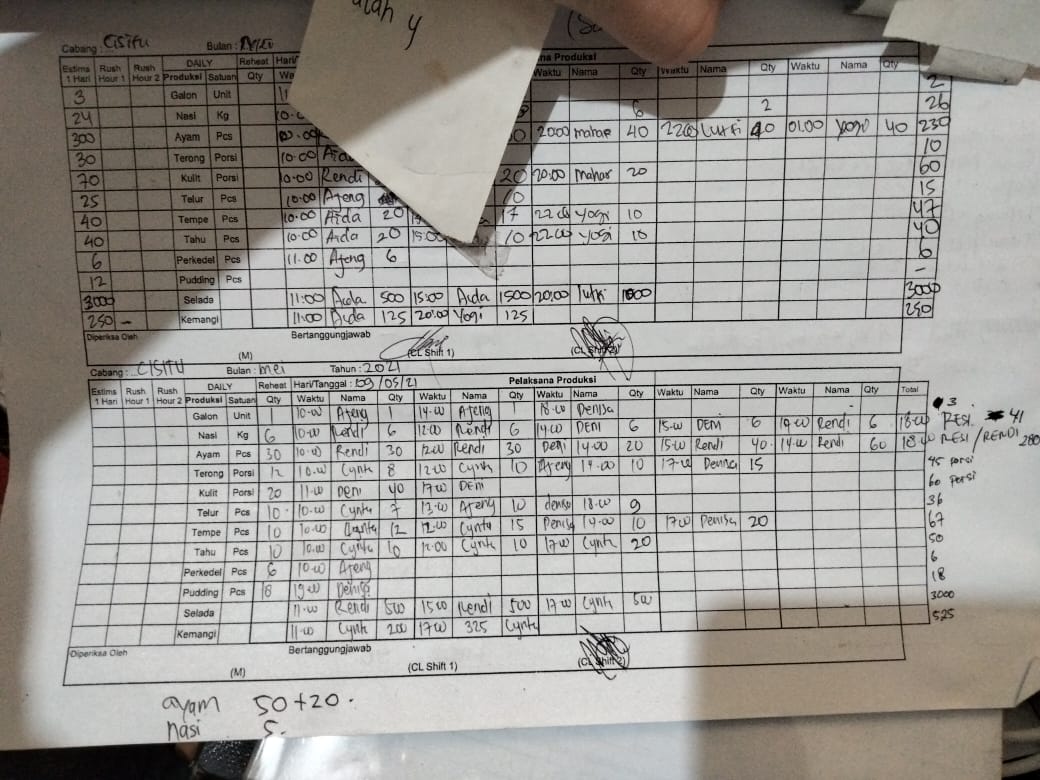 atah y
Cabang : Cisitu Bulan : Mei
Estima 1 Hari Rush Hour 1 Rush Hour 2 DAILY Produksi Satuan Reheat Qty Hari/ Wa na Produksi Waktu Nama Qty Waktu Nama Qty Waktu Nama Qty
3 Galon Unit 2
24 Nasi Kg 6 2 26
300 Ayam Pcs 20.00 mahar 40 22.00 Lutfi 01.00 yogi 40 230
30 Terong Porsi 10.00 Aida 10
70 Kulit Porsi 10.00 Rendi 20 20.00 mahar 20 60
25 Telur Pcs 10.00 Ajeng 10 15
40 Tempe Pcs 10.00 Aida 20 17 22.00 yogi 10 47
40 Tahu Pcs 10.00 Aida 20 15.00 10 22.00 yogi 10 40
6 Perkedel Pcs 11.00 Ajeng 6 6
12 Pudding Pcs -
3000 Selada 11:00 Aida 500 15:00 Aida 1500 20:00 Lutfi 1000 3000
250 - Kemangi 11:00 Aida 125 20:00 Yogi 125 250
Diperiksa Oleh Bertanggungjawab
(M) (CL Shift 1) (CL Shift 2)
Cabang : CISITU Bulan : mei Tahun : 2021
Estima 1 Hari Rush Hour 1 Rush Hour 2 DAILY Produksi Satuan Reheat Qty Hari/Tanggal : 09/05/21 Pelaksana Produksi Waktu Nama Qty Waktu Nama Qty Waktu Nama Qty Waktu Nama Qty Waktu Nama Qty Total
Galon Unit 1 10.00 Ajeng 1 14.00 Ajeng 1 18.00 Denisa 3
Nasi Kg 6 10.00 Rendi 6 12.00 Rendi 6 14.00 DENI 6 15.00 DENI 6 17.00 Rendi 6 18.00 RESI 41
Ayam Pcs 30 10.00 Rendi 30 12.00 Rendi 30 Deni 14.00 20 15.00 Rendi 40 14.00 Rendi 60 18.00 RESI / RENDI 280
Terong Porsi 12 10.00 Cynta 8 12.00 Cynta 10 Ajeng 14.00 10 17.00 Denisa 15 45 porsi
Kulit Porsi 20 11.00 DENI 40 17.00 DENI 60 persi
Telur Pcs 10 10.00 Cynta 7 13.00 Ajeng 10 denisa 18.00 9 36
Tempe Pcs 10 10.00 Cynta 12 12.00 Cynta 15 Denisa 14.00 10 17.00 Denisa 20 67
Tahu Pcs 10 10.00 Cynta 10 12.00 Cynta 10 17.00 Cynta 20 50
Perkedel Pcs 6 10.00 Ajeng 6
Pudding Pcs 18 19.00 Denisa 18
Selada 11.00 Rendi 500 15.00 Rendi 500 17.00 Cynta 500 3000
Kemangi 11.00 Cynta 200 17.00 325 Cynta 525
Diperiksa Oleh Bertanggungjawab
(M) (CL Shift 1) (CL Shift 2)
ayam 50+20.
nasi 5.